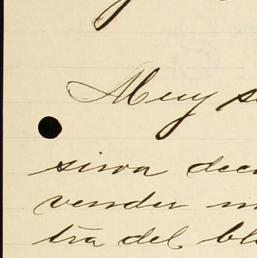 Muy s
sirva deci
vender m
tra del bl